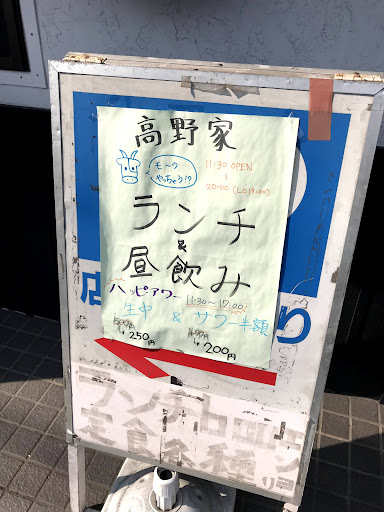 高野家
モ〜ウ
やっちゃう!?
11:30 OPEN
20:00 (LO19:00)
ランチ
&
昼飲み
ハッピアワー
11:30〜17:00
生中 & サワー半額
¥250円
¥200円
店
り
ランチ
定食